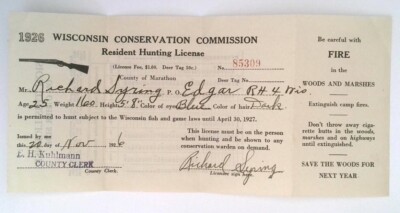 1926 WISCONSIN CONSERVATION COMMISSION
Resident Hunting License
(License Fee, $1.00. Deer Tag 50c.)
No. 85309
County of Marathon
Deer Tag No.
Mr. Richard Syring P. O. Edgar R# 4 Wis.
Age 25 Weight 160 Height 5'8" Color of eyes Blue Color of hair Dark
is permitted to hunt subject to the Wisconsin fish and game laws until April 30, 1927.
Issued by me
this 20 day of Nov 1926
E. H. Kuhlmann
COUNTY CLERK
County Clerk.
This license must be on the person
when hunting and be shown to any
conservation warden on demand.
Richard Syring
Licensee sign here.
Be careful with
FIRE
in the
WOODS AND MARSHES
Extinguish camp fires.
Don't throw away ciga-
rette butts in the woods,
marshes and on highways
until extinguished.
SAVE THE WOODS FOR
NEXT YEAR